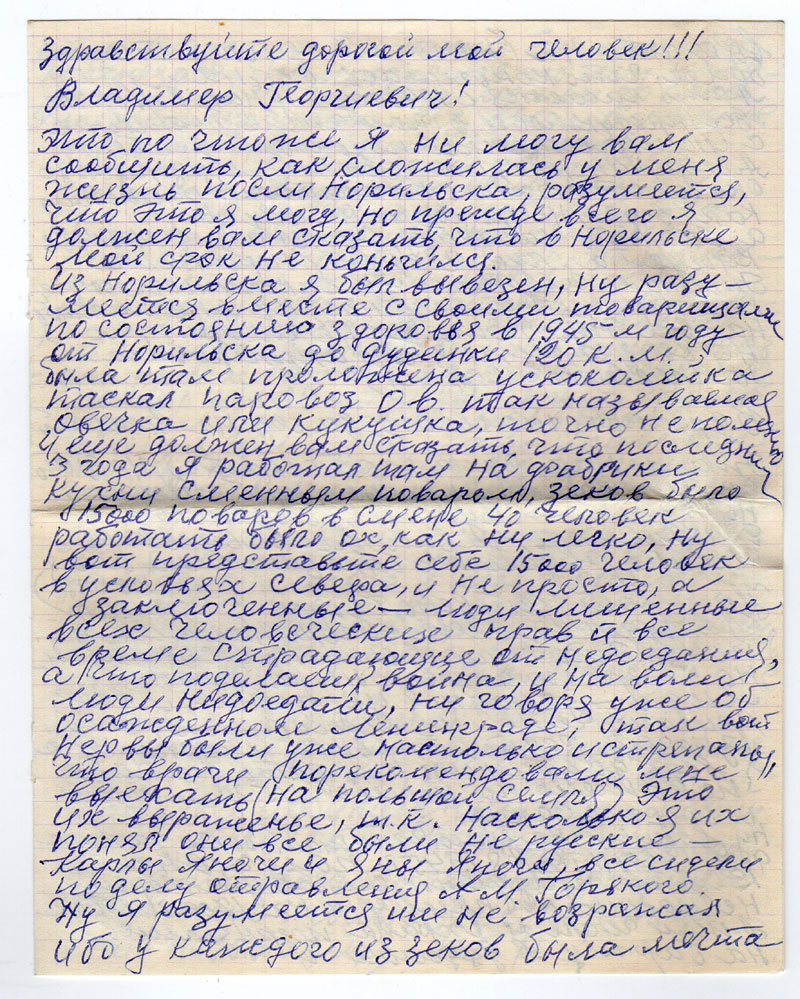 Здравствуйте дорогой мой человек!!!
Владимер Георгиевич!
Это по чтоже я ни могу вам
сообщить, как сложилась у меня
жизнь посли Норильска, разуметса,
что это я могу, но прежде всего я
должен вам сказать, что в Норильске
мой срок не коньчился.
Из Норильска я был вывезен, ну разу-
меется вместе с своими товарищами
по состоянию здоровья в 1945-м году
от Норильска до Дудинки 120 к.м.,
была там проложена ускоколейка
таскал паровоз О.в. так называемая
овечка или кукушка, точно не помню
И еще должен вам сказать, что последнии
3 года я работал там на фабрики
кухни сменным поваром, зеков было
15000 поваров в смене 40 человек
работать было ох, как ни легко, ну
вот представте себе 15000 человек
в условьях севера, и не просто, а
заключенные — люди лишенные
всех человеческих прав и все
време страдающие от недоедания,
а что поделаеш, война, и на воли
люди нидоедали, ни говоря уже об
осажденном Ленинграде, так вот
нервы были уже настолько истрепаны,
что врачи порекомендовали мне
выехать (на польшой семля) Это
их выраженье, т.к. Насколько я их
понял они все были не русские —
Карлы Яночи и Яны , все сидели
по делу отравления А.М. Горького.
Ну я разумеется им не возражал
ибо у каждого из зеков была мечта